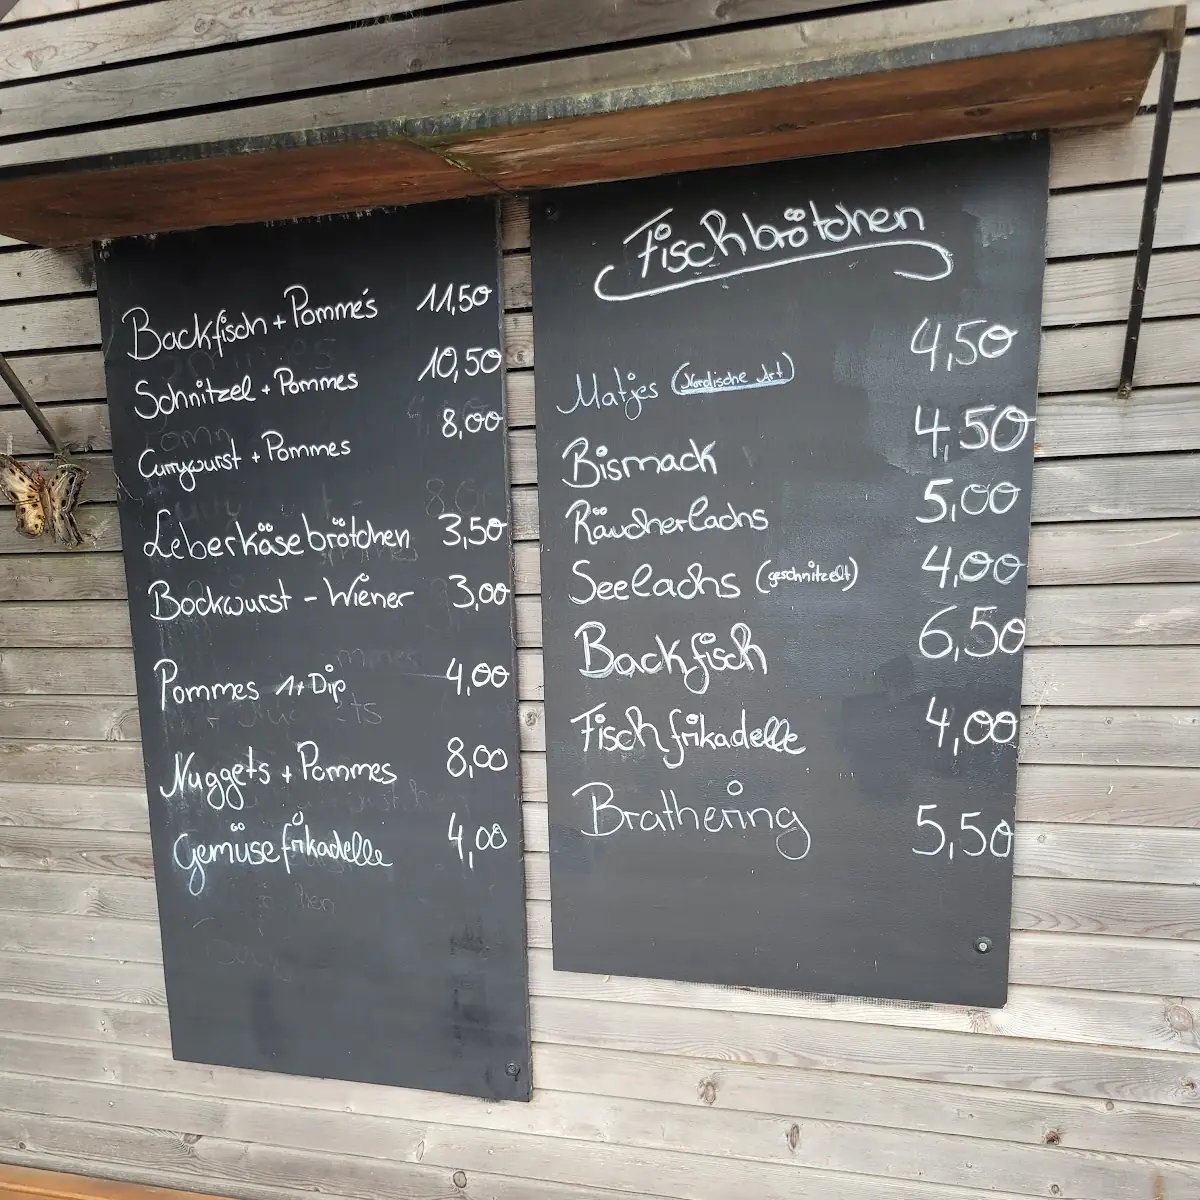 Backfisch + Pomme's 11,50
Schnitzel + Pommes 10,50
Currywurst + Pommes 8,00
Leberkäsebrötchen 3,50
Bockwurst - Wiener 3,00
Pommes 1+Dip 4,00
Nuggets + Pommes 8,00
Gemüsefrikadelle 4,00
Fischbrötchen
Matjes (Nordische Art) 4,50
Bismack 4,50
Räucherlachs 5,00
Seelachs (geschnitzelt) 4,00
Backfisch 6,50
Fischfrikadelle 4,00
Brathering 5,50